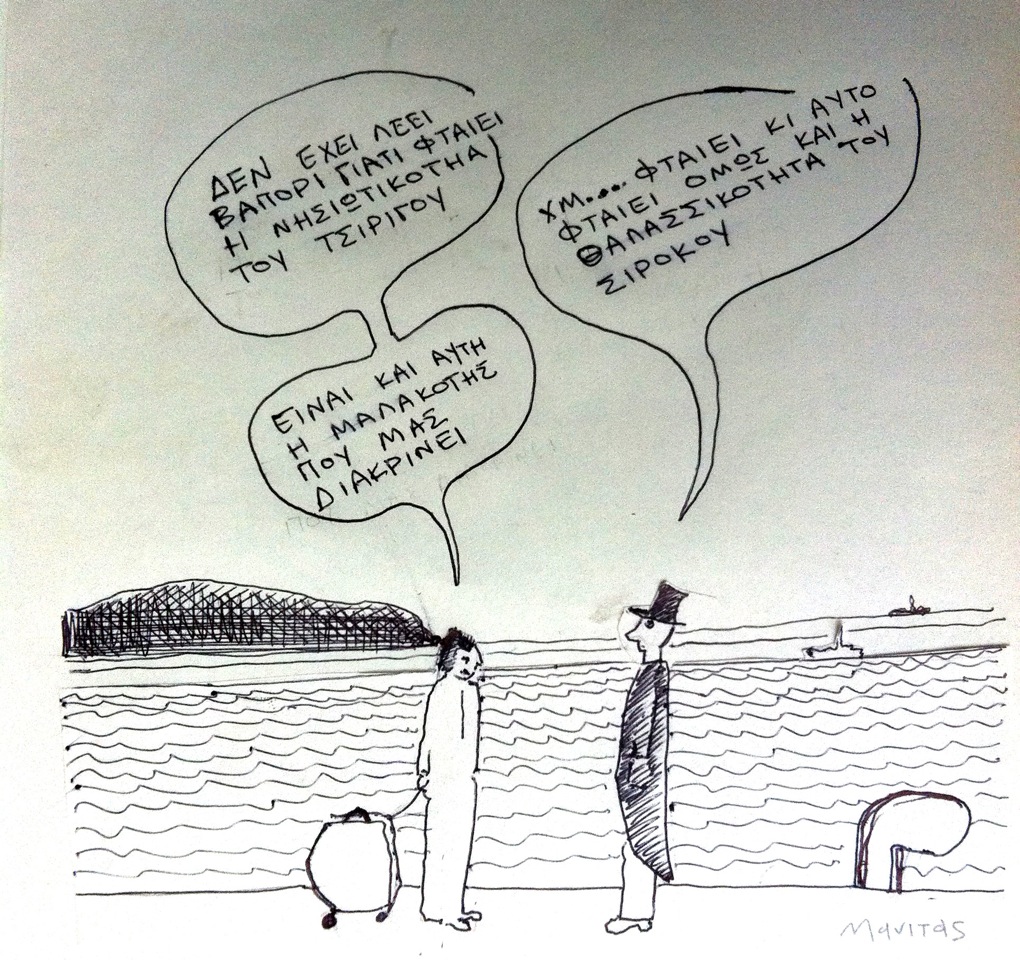 ΔΕΝ ΕΧΕΙ ΛΕΕΙ
ΒΑΠΟΡΙ ΓΙΑΤΙ ΦΤΑΙΕΙ
Η ΝΗΣΙΩΤΙΚΟΤΗΑ
ΤΟΥ ΤΣΙΡΙΓΟΥ
ΕΙΝΑΙ ΚΑΙ ΑΥΤΗ
Η ΜΑΛΑΚΟΤΗΣ
ΠΟΥ ΜΑΣ
ΔΙΑΚΡΙΝΕΙ
ΧΜ.... ΦΤΑΙΕΙ ΚΙ ΑΥΤΟ
ΦΤΑΙΕΙ ΟΜΩΣ ΚΑΙ Η
ΘΑΛΑΣΣΙΚΟΤΗΤΑ ΤΟΥ
ΣΙΡΟΚΟΥ
Μανιτας